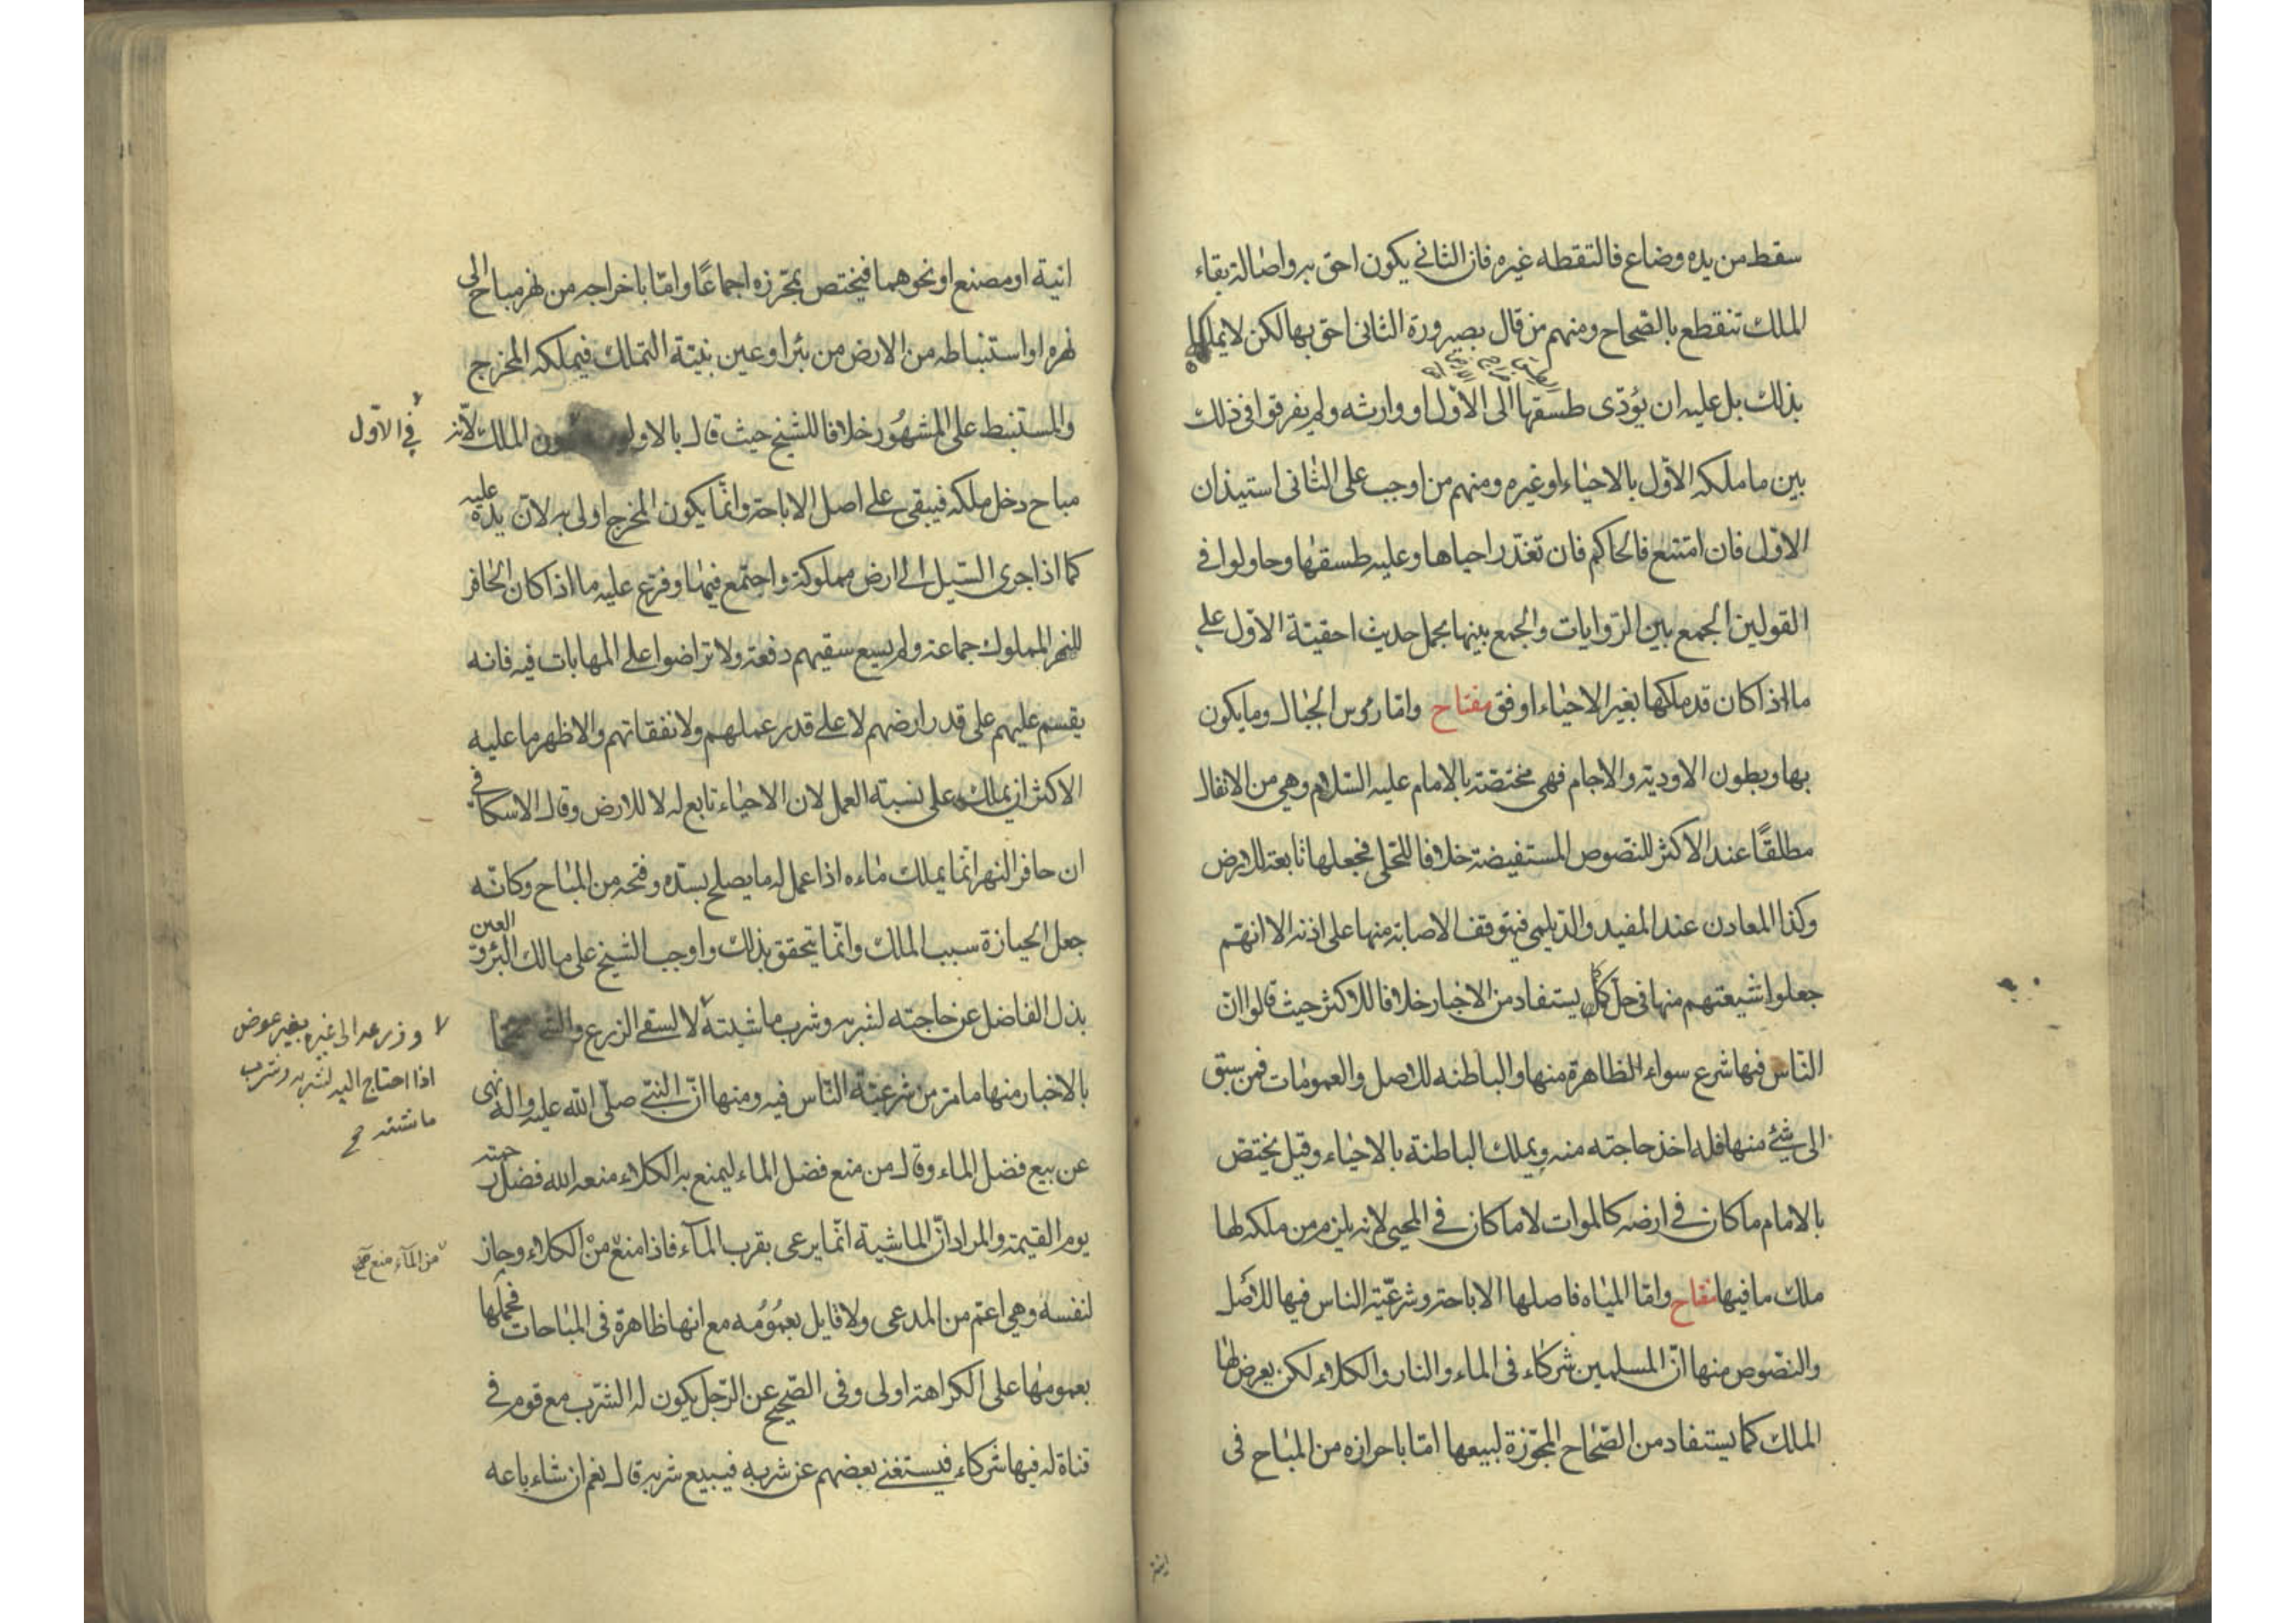 سقط من يده وضاع فالتقطه غيره فان الثاني يكون احق به واصالة بقاء
الملك تنقطع بالصّحاح ومنهم من قال بصيرورة الثانى احق بها لكن لا يملكها
بذلك بل عليه ان يؤدّى طسقها الى الاوّل او وارثه ولم يفرقوا فى ذلك
بين ما ملكه الاوّل بالاحياء او غيره ومنهم من اوجب على الثانى استيذان
الاوّل فان امتنع فالحاكم فان تعذّر احياها وعليه طسقها وحاولوا فى
القولين الجمع بين الرّوايات والجمع بينها بحمل حديث احقيّة الاوّل على
ما اذا كان قد ملكها بغير الاحياء اوفق مفتاح وامّا رؤس الجبال وما يكون
بها وبطون الاودية والاجام فهى مختصّة بالامام عليه السّلام وهى من الانفال
مطلقًا عند الاكثر للنصوص المستفيضة خلافا للحلى فجعلها تابعة للارض
وكذا المعادن عند المفيد والدّيلمى فيتوقف الاصابة منها على اذنه الا انهم
جعلوا شيعتهم منها فى حل كما يستفاد من الاخبار خلافا للاكثر حيث قالوا انّ
النّاس فيها شرع سواء الظاهرة منها والباطنه للاصل والعمومات فمن سبق
الى شئ منها فله اخذ حاجته منه ويملك الباطنة بالاحياء وقيل يختصّ
بالامام ما كان فى ارضه كالموات لا ما كان فى المحيى لانه يلزم من ملكه لها
ملك ما فيها مفتاح وامّا المياه فاصلها الاباحة وشرعيّة الناس فيها للاصل
والنصّوص منها انّ المسلمين شركاء فى الماء والنار والكلاء لكن يعرض لها
الملك كما يستفاد من الصّحاح المجوّزة لبيعها امّا باحرازه من المباح فى
انية
انية او مصنع او نحوهما فيختص بمحرزه اجماعًا وامّا باخراجه من نهر مباح الى
نهره او استنباطه من الارض من بئر او عين بنيّة التملك فيملكه المخرج
والمستنبط على المشهور خلافا للشيخ حيث قال بالاولوية دون الملك لانّه
فى الاوّل
مباح دخل ملكه فيبقى على اصل الاباحة وانّما يكون المخرج اولى به لانّ يده عليه
كما اذا جرى السّيل الى ارض مملوكة واجتمع فيها وفرّع عليه ما اذا كان الحافر
للنهر المملوك جماعة ولم يسع سقيهم دفعة ولا تراضوا على المهابات فيه فانه
يقسم عليهم على قدر ارضهم لا على قدر عملهم ولا نفقاتهم والاظهر ما عليه
الاكثر ان يملك على نسبة العمل لان الاحياء تابع له لا للارض وقال الاسكافى
ان حافر النهر انّما يملك ماءه اذا عمل له ما يصلح بسدّه وفتحه من المباح وكانّه
جعل الحيازة سبب الملك وانّما يتحقق بذلك واوجب الشيخ على مالك البئر والعين
بذل الفاضل عن حاجته لشربه وشرب ماشيته لا لسقى الزرع
وزرعه الى غيره بغير عوض
اذا احتاج اليه لشربه وشرب
ماشيته صح
بالاخبار منها ما مرّ من شرعيّة النّاس فيه ومنها انّ النبّى صلّى الله عليه واله نهى
عن بيع فضل الماء وقال من منع فضل الماء ليمنع به الكلاء منعه الله فضل رحمته
يوم القيمة والمراد انّ الماشية انّما يرعى بقرب المآء فاذا منع من الكلاء وحاز
من المآء منع صح
لنفسه وهى اعمّ من المدعى ولا قايل بعمومه مع انها ظاهرة فى المباحات فحملها
بعمومها على الكراهة اولى وفى الصّحيح عن الرّجل يكون له الشرّب مع قوم فى
قناة له فيها شركاء فيستغنى بعضهم عن شربه فيبيع شربه قال نعم ان شاء باعه